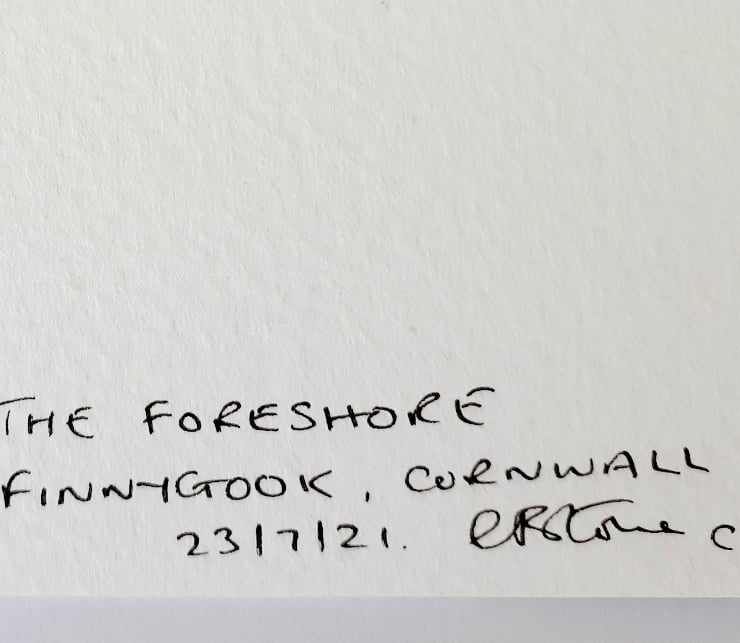 THE FORESHORE
FINNYGOOK, CORNWALL
23/7/21.